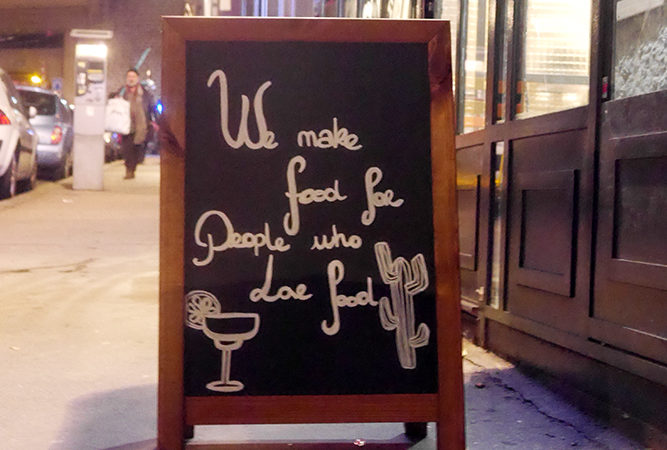 We make
food for
People who
Love food